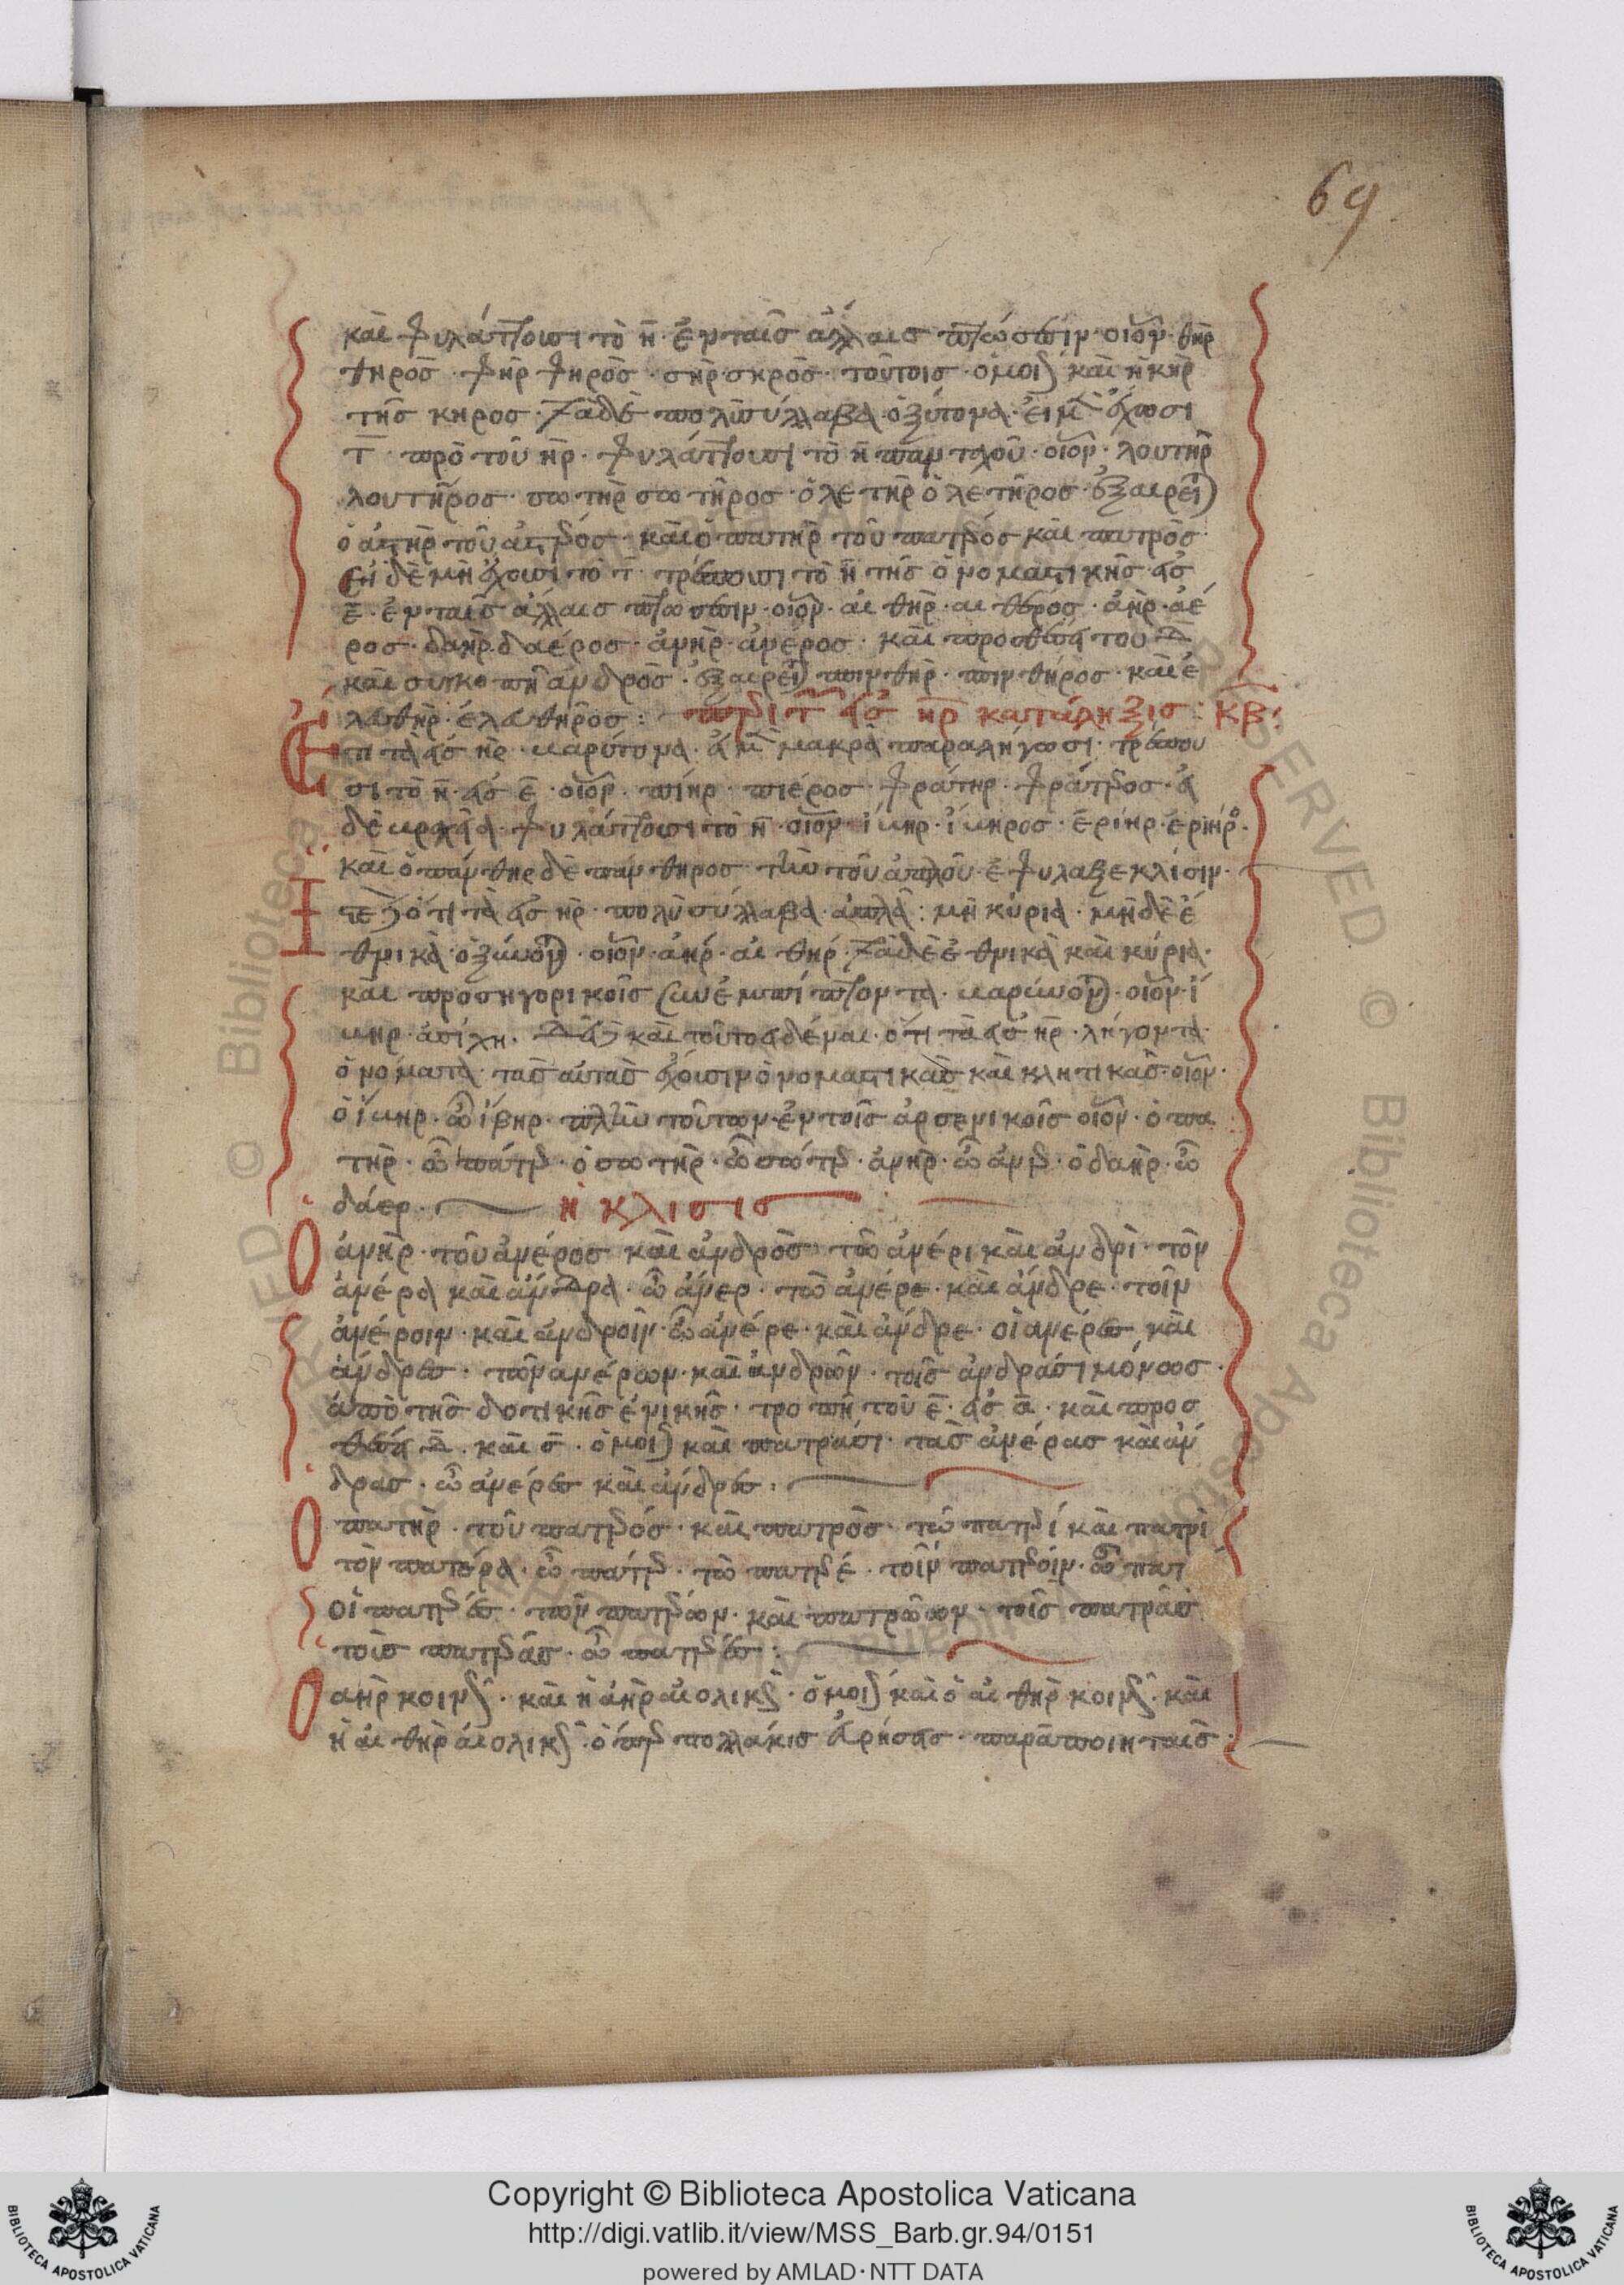 69
καὶ φυλάττουσι τὸ η̄ ἐν ταῖς ἄλλαις πτώσεσιν· οἷον· θὴρ
θηρὸς· φὴρ φηρὸς· σὴρ σηρὸς· τούτοις ὁμοί καὶ ἡ κὴρ
τῆς κηρος· τὰ δὲ πολυσύλλαβα ὀξύτονα· εἰ μὲν ἔχωσι
τ̄ πρὸ τοῦ ηρ· φυλάττουσι τὸ η̄ πανταχοῦ· οἷον· λουτὴρ
λουτῆρος· σωτὴρ σωτῆρος· ὀλετὴρ ὀλετῆρος· ἐξαιρεῖ
ὁ ἀστὴρ τοῦ ἀστέρος· καὶ ὁ πατὴρ τοῦ πατέρος καὶ πατρὸς·
Εἰ δὲ μὴ ἔχουσι τὸ τ̄· τρέπουσι τὸ η̄ τῆς ὀνομαστικῆς εἰς
ε̄· ἐν ταῖς ἄλλαις πτώσεσιν· οἷον· αἰθὴρ· αἰθέρος· ἀὴρ· ἀέ
ρος· δαὴρ δαέρος· ἀνὴρ· ἀνέρος· καὶ προσθέσει του δ̄
καὶ συγκοπῆ ἀνδρὸς· ἐξαιρεῖ πινθὴρ· πινθῆρος· καὶ ἐ
λατὴρ· ἐλατῆρος: περὶ τ εἰς ηρ κατάληξις: ΚΒ:
Ἐπὶ τὰ εἰς ηρ· βαρύτονα· εἰ μὲν μακρὰ παραλήγωσι· τρέπου
σι τὸ η̄ εἰς ε̄· οἷον· πίηρ· πιέρος· φράτηρ· φράτερος· εἰ
δὲ βραχεία· φυλάττουσι τὸ η̄· οἷον· ἴβηρ· ἴβηρος· ἐρίηρ· ἐρίηρος·
καὶ ὁ πάνθηρ δὲ πάνθηρος τὴν τοῦ ἁπλοῦ ἐφύλαξε κλίσιν·
ὅτι τὰ εἰς ηρ· πολυσύλλαβα ἁπλᾶ: μὴ κύρια· μὴδὲ ἐ
θνικὰ ὀξύνον· οἷον· ἀήρ· αἰθήρ· τὰ δὲ ἐθνικὰ καὶ κύρια·
καὶ προσηγορικοῖς συνεμπίπτοντα· βαρύνον· οἷον· ἴ
βηρ· ἀσίλη· δεῖ καὶ τοῦτο εἰδέναι· ὅτι τὰ εἰς ηρ· λήγοντα·
ὀνόματα· τὰς αὐτὰς ἔχουσιν ὀνομαστικὰς καὶ κλητικὰς· οἷον·
ὁ ἴβηρ· ὦ ἴβηρ· πλὴν τούτων· ἐν τοῖς ἀρσενικοῖς οἷον· ὁ πα
τὴρ· ὦ πάτερ· ὁ σωτὴρ· ὦ σώτερ· ἀνὴρ· ὦ ἄνερ· ὁ δαὴρ· ὦ
δάερ· ἡ κλισις
Ο ἀνὴρ· τοῦ ἀνέρος καὶ ἀνδρὸς· τῶ ἀνέρι καὶ ἀνδρὶ· τὸν
ἀνέρα καὶ ἄνδρα· ὦ ἄνερ· τὼ ἀνέρε· καὶ ἄνδρε· τοῖν
ἀνέροιν· καὶ ἀνδροῖν· ὦ ἀνέρε· καὶ ἄνδρε· οἱ ανέρες καὶ
ἄνδρες· τῶν ανέρων· καὶ ἀνδρῶν· τοῖς ἀνδράσι μόνως·
ἀπὸ τῆς δοτικῆς ἑνικῆς· τροπῆ τοῦ ε̄· εἰς ᾱ· καὶ προσ
θέσει δ̄· καὶ σ̄· ὁμοί καὶ πατράσι· τὰς ἀνέρας καὶ ἄν
δρας· ὦ ἀνέρες καὶ ἄνδρες·
Ο πατὴρ· τοῦ πατέρος· καὶ πατρὸς· τῶ πατέρι καὶ πατρὶ
τὸν πατέρα· ὦ πάτερ· τὼ πατέρε· τοῖν πατέροιν· ὦ πατ
οἱ πατέρες· τῶν πατέρων· καὶ πατρῶων· τοῖς πατράσι
τοὺς πατέρας· ὦ πατέρες:
Ο αὴρ κοινῶς· καὶ ἡ ἀὴρ αἰολικῶς· ὁμοί καὶ ὁ αἰθὴρ κοινῶς· καὶ
ἡ αἰθὴρ αἰολικῶς· ὁ πολλάκις εὑρήσεις· παρὰ ποιηταῖς·
Copyright © Biblioteca Apostolica Vaticana
http://digi.vatlib.it/view/MSS_Barb.gr.94/0151
powered by AMLAD·NTT DATA